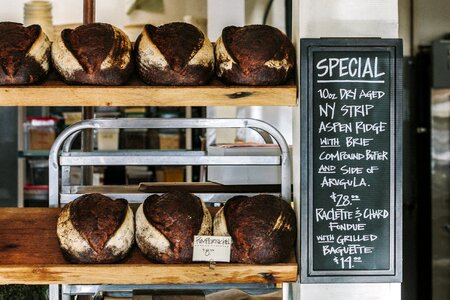 SPECIAL
10oz DRY AGED
NY STRIP
ASPEN RIDGE
WITH BRIE
COMPOUND BUTTER
AND SIDE OF
ARUGULA.
$28.00
RACLETTE & CHARD
FONDUE
WITH GRILLED
BAGUETTE
$14.
PUMPERNICKEL
$8